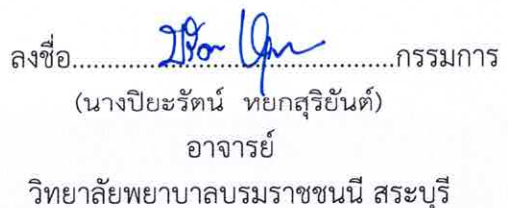 ลงชื่อ..............................................กรรมการ
(นางปิยะรัตน์ หยกสุริยันต์)
อาจารย์
วิทยาลัยพยาบาลบรมราชชนนี สระบุรี